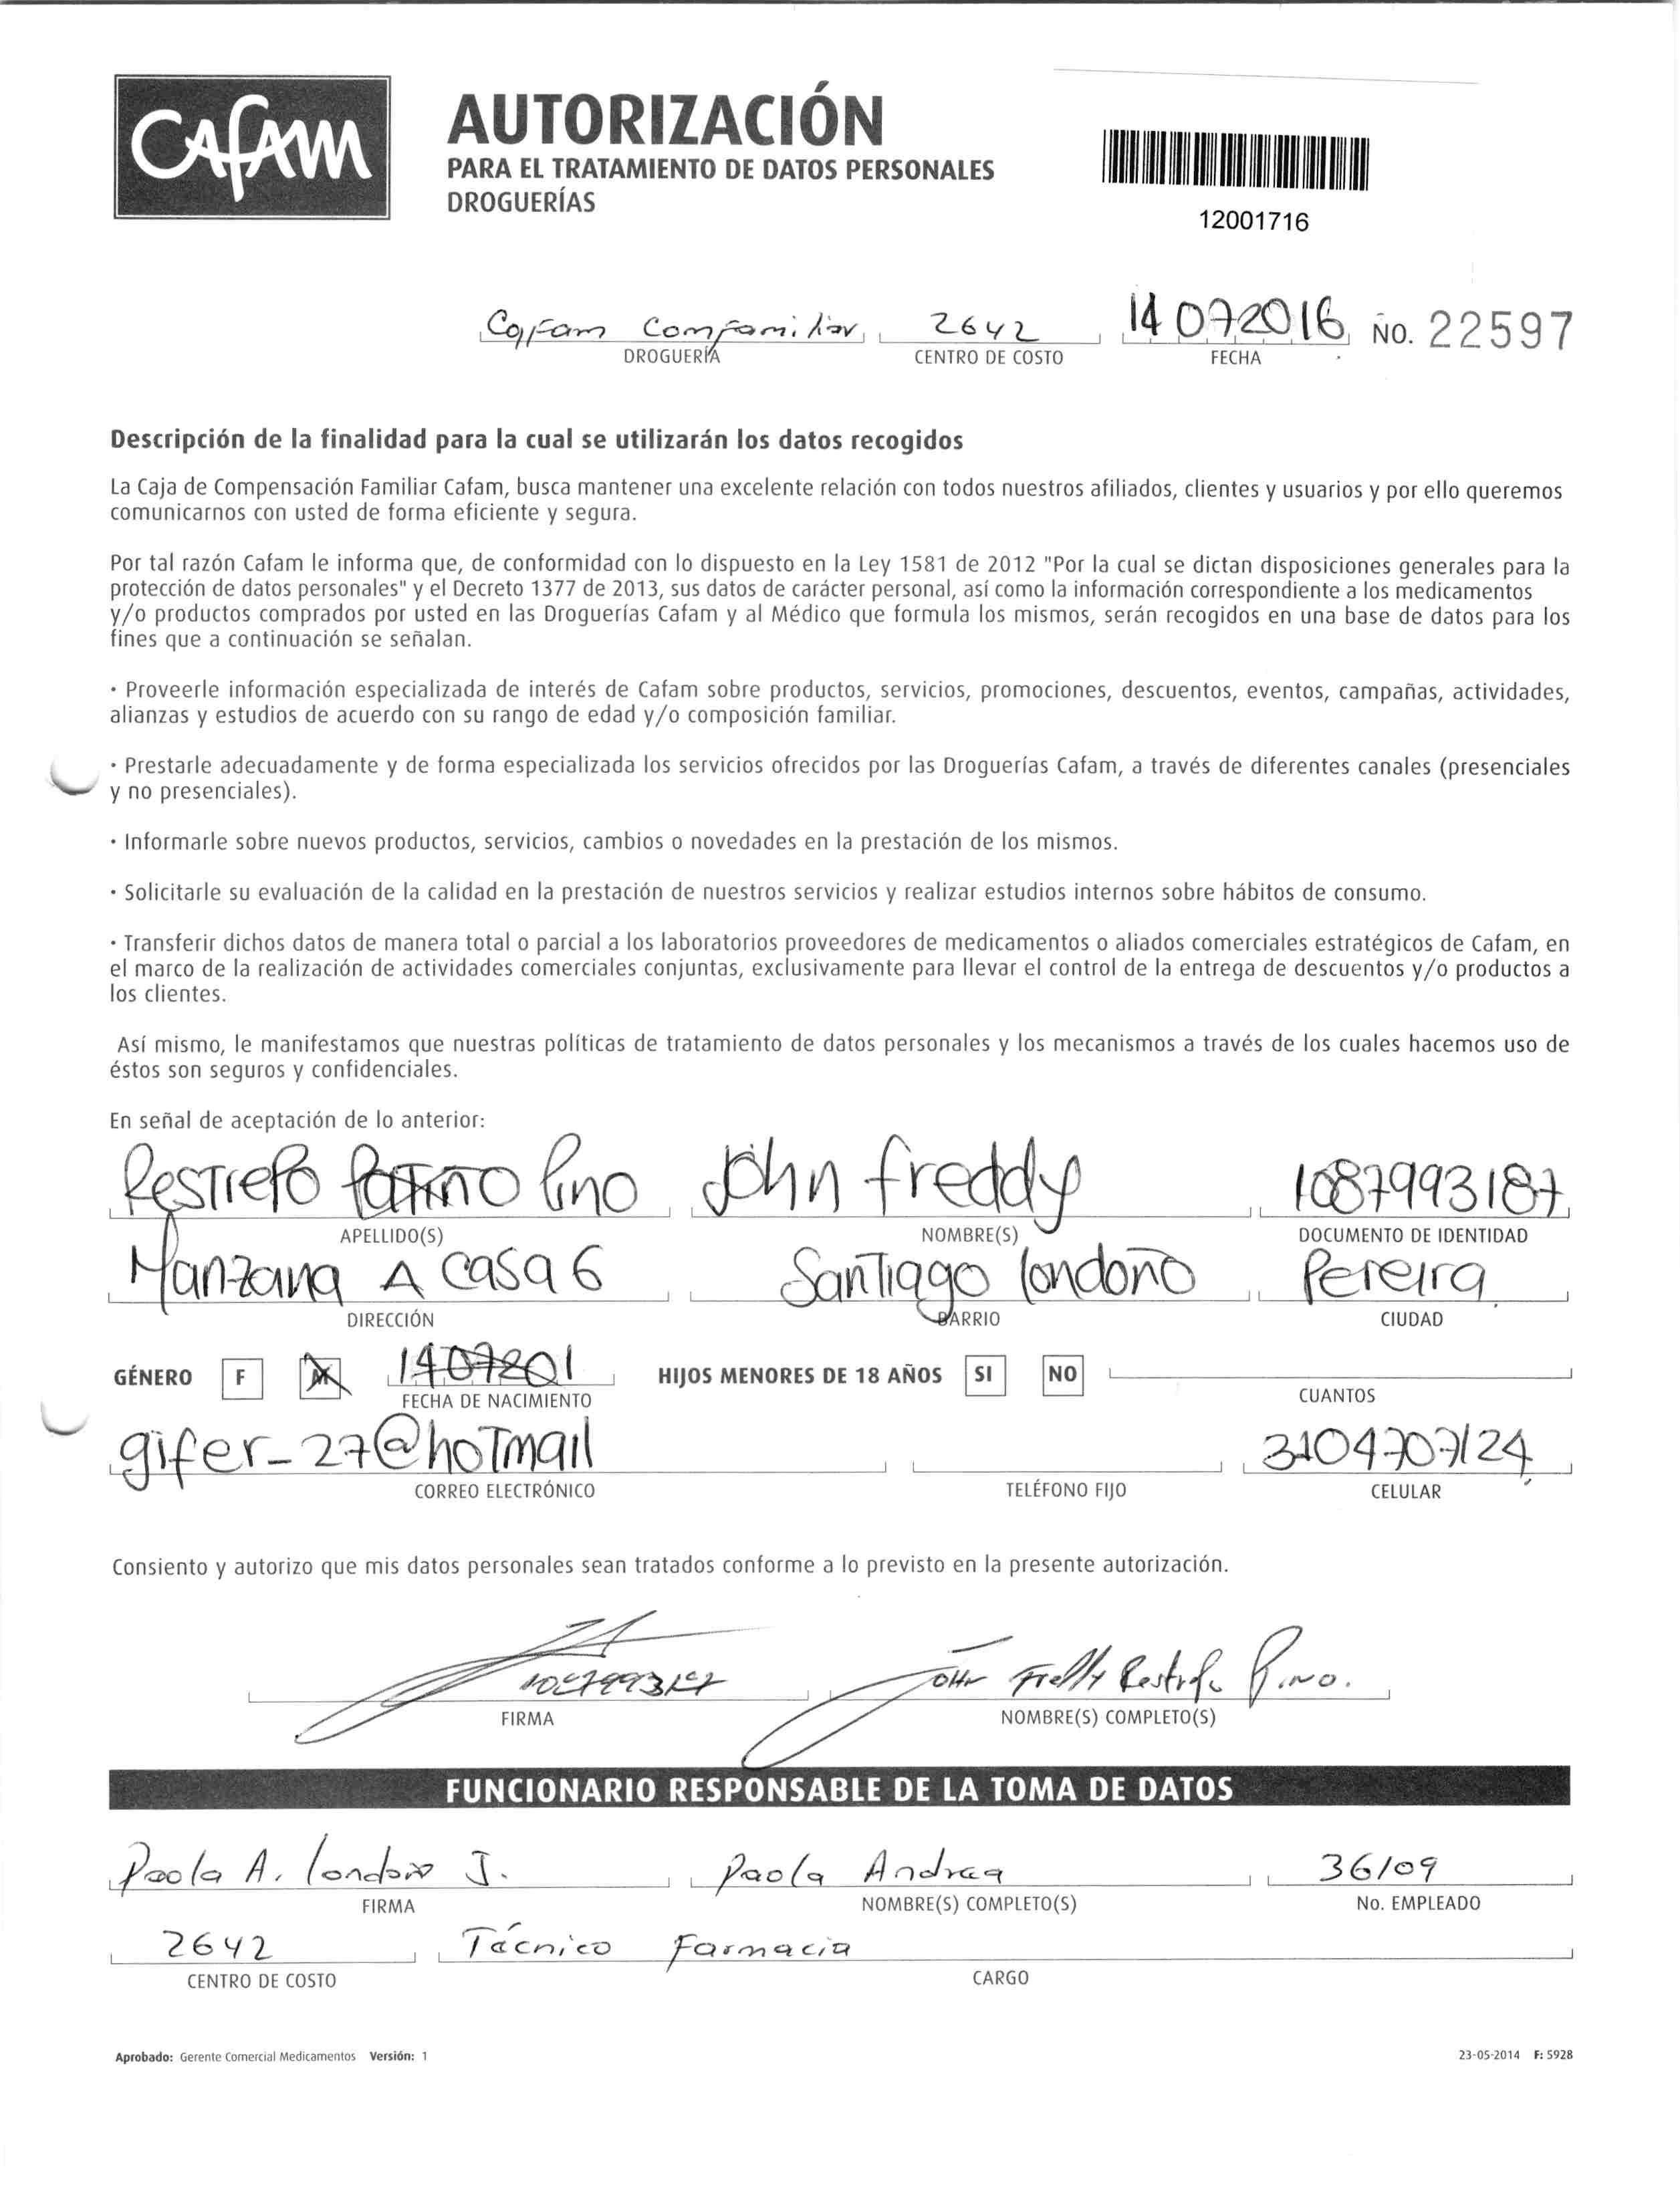 Cafam
AUTORIZACIÓN
PARA EL TRATAMIENTO DE DATOS PERSONALES
DROGUERÍAS
12001716
Cafam Comfamiliar 2642 14 07 2016 No. 22597
DROGUERÍA CENTRO DE COSTO FECHA
Descripción de la finalidad para la cual se utilizarán los datos recogidos
La Caja de Compensación Familiar Cafam, busca mantener una excelente relación con todos nuestros afiliados, clientes y usuarios y por ello queremos
comunicarnos con usted de forma eficiente y segura.
Por tal razón Cafam le informa que, de conformidad con lo dispuesto en la Ley 1581 de 2012 "Por la cual se dictan disposiciones generales para la
protección de datos personales" y el Decreto 1377 de 2013, sus datos de carácter personal, así como la información correspondiente a los medicamentos
y/o productos comprados por usted en las Droguerías Cafam y al Médico que formula los mismos, serán recogidos en una base de datos para los
fines que a continuación se señalan.
· Proveerle información especializada de interés de Cafam sobre productos, servicios, promociones, descuentos, eventos, campañas, actividades,
alianzas y estudios de acuerdo con su rango de edad y/o composición familiar.
· Prestarle adecuadamente y de forma especializada los servicios ofrecidos por las Droguerías Cafam, a través de diferentes canales (presenciales
y no presenciales).
· Informarle sobre nuevos productos, servicios, cambios o novedades en la prestación de los mismos.
· Solicitarle su evaluación de la calidad en la prestación de nuestros servicios y realizar estudios internos sobre hábitos de consumo.
· Transferir dichos datos de manera total o parcial a los laboratorios proveedores de medicamentos o aliados comerciales estratégicos de Cafam, en
el marco de la realización de actividades comerciales conjuntas, exclusivamente para llevar el control de la entrega de descuentos y/o productos a
los clientes.
Así mismo, le manifestamos que nuestras políticas de tratamiento de datos personales y los mecanismos a través de los cuales hacemos uso de
éstos son seguros y confidenciales.
En señal de aceptación de lo anterior:
Restrepo Patiño Pino John freddy 1087993187
APELLIDO(S) NOMBRE(S) DOCUMENTO DE IDENTIDAD
Manzana A casa 6 Santiago londoño Pereira
DIRECCIÓN BARRIO CIUDAD
GÉNERO F M 1407201 HIJOS MENORES DE 18 AÑOS SI NO
FECHA DE NACIMIENTO CUANTOS
gifer_27@hotmail 3104707124
CORREO ELECTRÓNICO TELÉFONO FIJO CELULAR
Consiento y autorizo que mis datos personales sean tratados conforme a lo previsto en la presente autorización.
1087993187 John Freddy Restrepo Pino.
FIRMA NOMBRE(S) COMPLETO(S)
FUNCIONARIO RESPONSABLE DE LA TOMA DE DATOS
Paola A. londoño J. Paola Andrea 36109
FIRMA NOMBRE(S) COMPLETO(S) No. EMPLEADO
2642 Técnico Farmacia
CENTRO DE COSTO CARGO
Aprobado: Gerente Comercial Medicamentos Versión: 1 23-05-2014 F: 5928